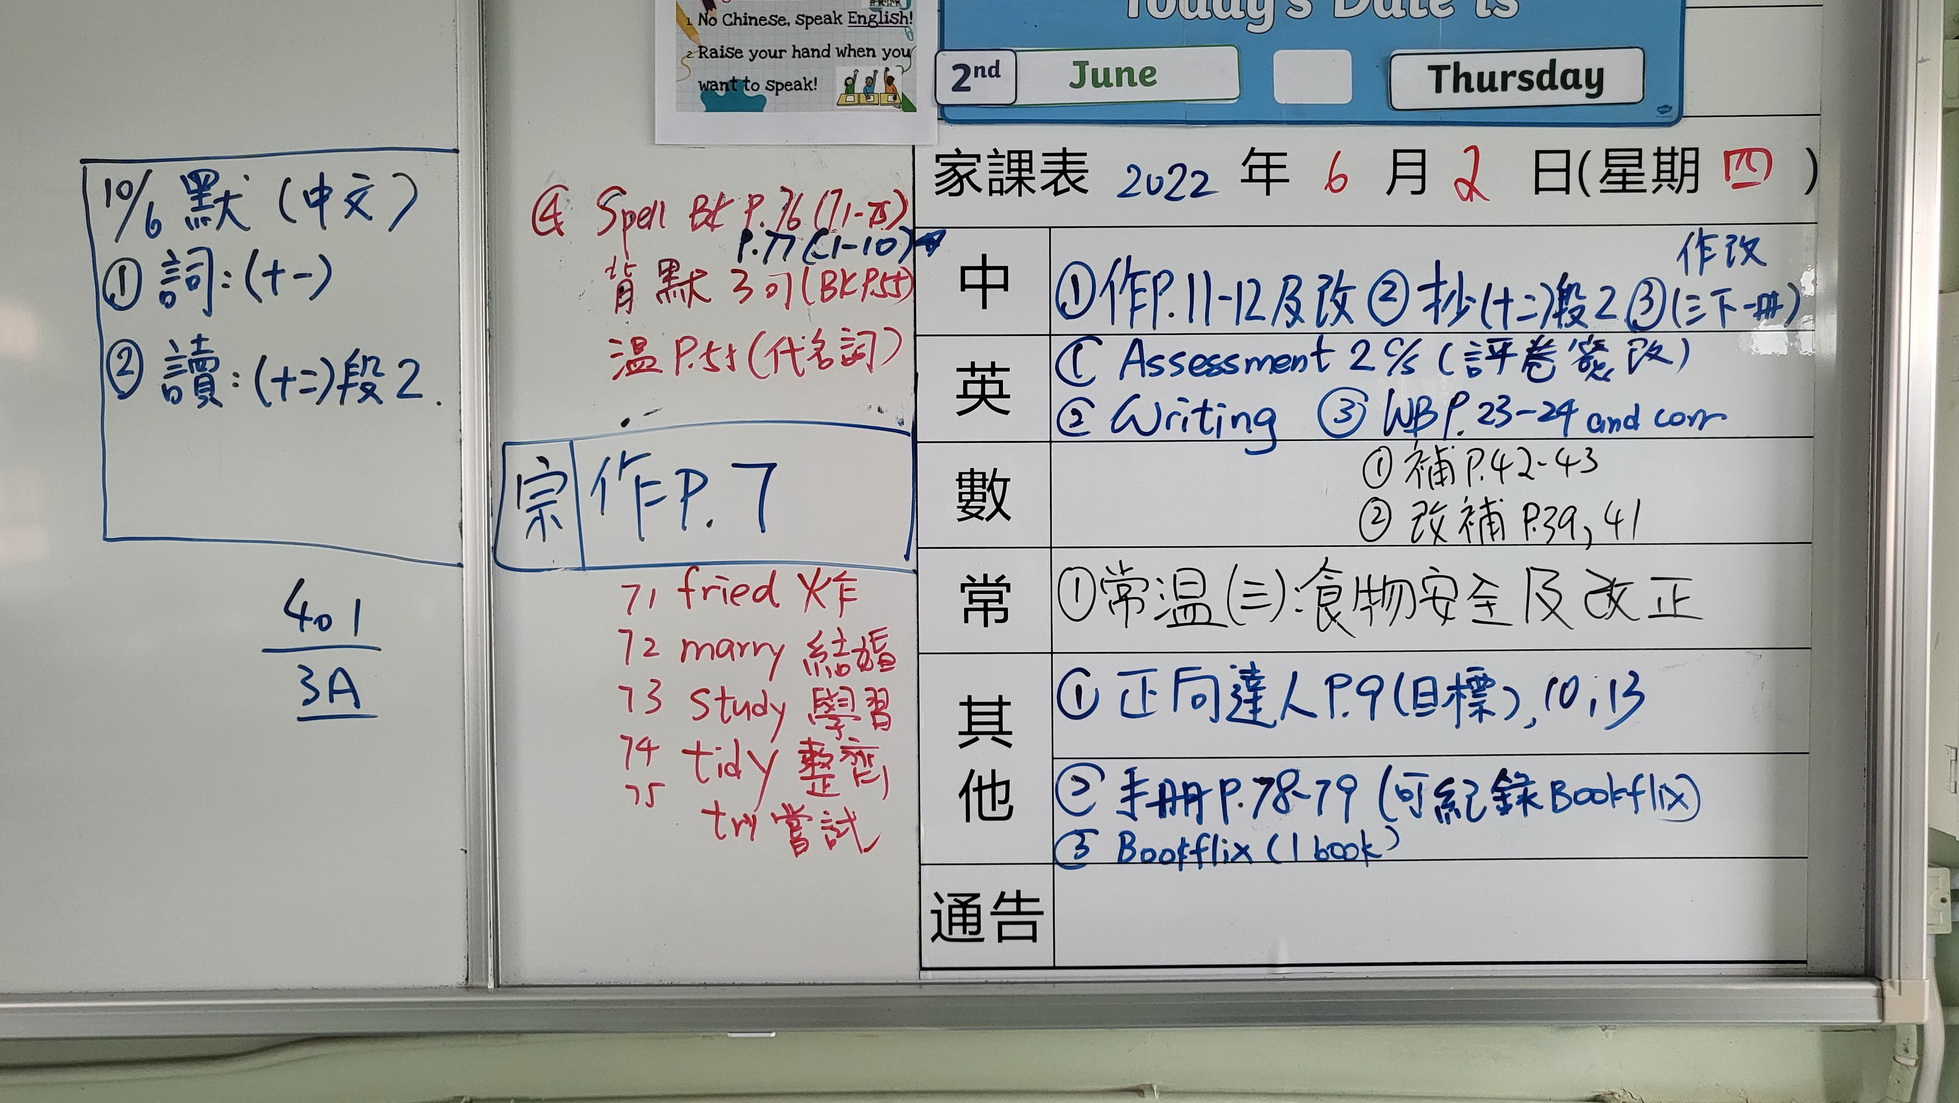 1. No Chinese, speak English!
2. Raise your hand when you
want to speak!
Today's Date is
2nd June Thursday
10/6 默 (中文)
① 詞:(十一)
② 讀:(十二)段2.
401
3A
④ Spell Bk P.76 (71-75)
P.77 (1-10)
背默3句(BK P.55)
温 P.55 (代名詞)
宗 作P.7
71 fried 炸
72 marry 結婚
73 study 學習
74 tidy 整齊
75 try 嘗試
家課表 2022 年 6 月 2 日(星期 四 )
中 ①作P.11-12及改 ②抄(十二)段2 ③作改(三下一冊)
英 ① Assessment 2 c/s (評卷簽改)
② Writing ③ WB P.23-24 and corr
數 ① 補P.42-43
② 改補 P.39, 41
常 ①常温(三):食物安全及改正
其他 ① 正向達人P.9(目標), 10, 13
② 手冊P.78-79 (可紀錄Bookflix)
③ Bookflix (1 book)
通告